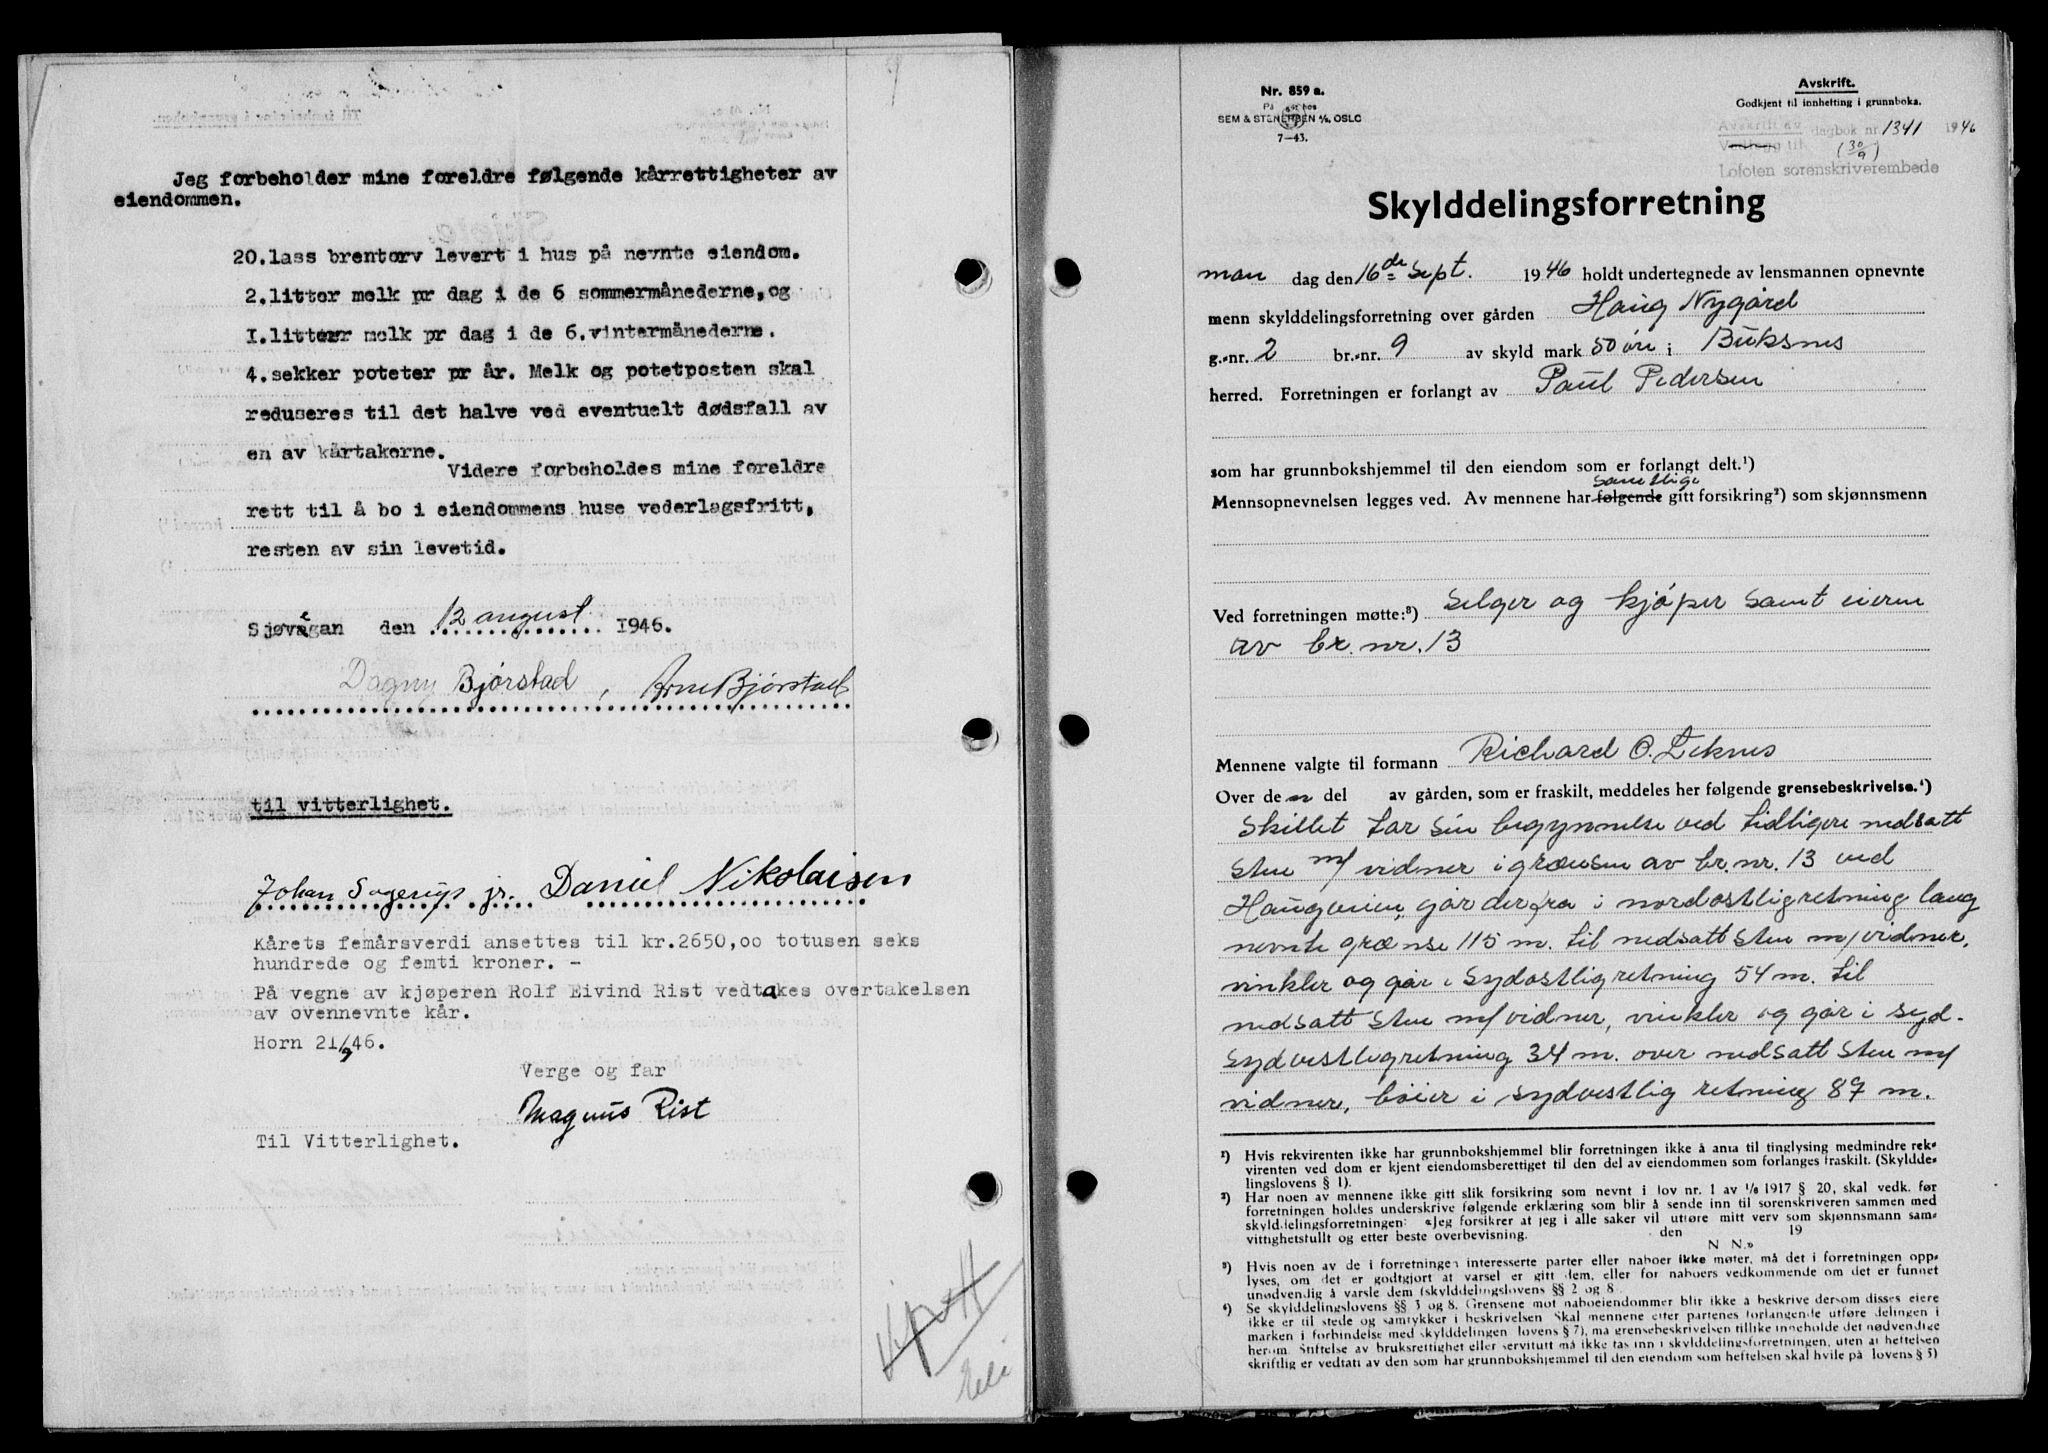 Jeg forbeholder mine foreldre følgende kårrettigheter av
eiendommen.
20.lass brentorv levert i hus på nevnte eiendom.
2.litter melk pr dag i de 6 sommermånederne,og
I.litter melk pr dag i de 6.vintermånederne.
4.sekker poteter pr år. Melk og potetposten skal
reduseres til det halve ved eventuelt dødsfall av
en av kårtakerne.
Videre forbeholdes mine foreldre
rett til å bo i eiendommens huse vederlagsfritt,
resten av sin levetid.
Sjøvågan den 12 august 1946.
Dagny Bjørstad, Arne Bjørstad
til vitterlighet.
Johan jr. Daniel Nikolaisen
Kårets femårsverdi ansettes til kr.2650,oo totusen seks
hundrede og femti kroner. -
På vegne av kjøperen Rolf Eivind Rist vedtakes overtakelsen
av ovennevnte kår.
Horn 21/9 46.
Verge og far
Magnus Rist
Til Vitterlighet.
Nr. 859 a.
På hos
SEM & STENERSEN A/S, OSLO
7—43.
Avskrift.
Godkjent til innhefting i grunnboka.
Avskrift av dagbok nr 1341 1946
Vedlegg til (30/9)
Lofoten sorenskriverembede
Skylddelingsforretning
man dag den 16de Sept. 1946 holdt undertegnede av lensmannen opnevnte
menn skylddelingsforretning over gården Haug Nygård
g.-nr. 2 br.-nr. 9 av skyld mark 50 øre i Buksnes
herred. Forretningen er forlangt av Paul Pedersen
som har grunnbokshjemmel til den eiendom som er forlangt delt.¹)
samtlige
Mennsopnevnelsen legges ved. Av mennene har følgende gitt forsikring²) som skjønnsmenn
Ved forretningen møtte:³) Selger og kjøper samt eieren
av br. nr. 13
Mennene valgte til formann Richard O. Leknes
Over den del av gården, som er fraskilt, meddeles her følgende grensebeskrivelse.⁴)
Skillet tar sin begynnelse ved tidligere nedsatt
sten m/ vidner i grensen av br. nr. 13 ved
Haugveien, går derfra i nordostlig retning lang
nevnte grænse 115 m. til nedsatt sten m/vidner,
vinkler og går i sydostlig retning 54 m. til
nedsatt sten m/vidner, vinkler og går i syd-
sydvestlig retning 34 m. over nedsatt sten m/
vidner, bøier i sydvestlig retning 87 m.
¹) Hvis rekvirenten ikke har grunnbokshjemmel blir forretningen ikke å anta til tinglysing medmindre rek-
virenten ved dom er kjent eiendomsberettiget til den del av eiendommen som forlanges fraskilt. (Skyldde-
lingslovens § 1).
²) Har noen av mennene ikke gitt slik forsikring som nevnt i lov nr. 1 av 1/6 1917 § 20, skal vedk. før
forretningen holdes underskrive følgende erklæring som blir å sende inn til sorenskriveren sammen med
skylddelingsforretningen: «Jeg forsikrer at jeg i alle saker vil utføre mitt verv som skjønnsmann sam-
vittighetsfullt og etter beste overbevisning. den 19
N. N.»
³) Hvis noen av de i forretningen interesserte parter eller naboer ikke møter, må det i forretningen opp-
lyses, om det er godtgjort at varsel er gitt dem, eller for naboers vedkommende om det er funnet
unødvendig å varsle dem (skylddelingslovens §§ 2 og 8
⁴) Se skylddelingslovens §§ 3 og 8. Grensene mot naboeiendommer blir ikke å beskrive dersom disses eiere
ikke er til stede og samtykker i beskrivelsen Skal mennene etter partenes forlangende utføre delingen i
marken i forbindelse med skylddelingen lovens § 7), må grensebeskrivelsen tillike inneholde det nødvendige
herom. Stiftelse av bruksrettighet eller servitutt må ikke tas inn i skylddelingsforretningen, uten at heftelsen
skriftlig er vedtatt av den som har grunnbokshjemmel til den eiendom som heftelsen skal hvile på lovens § 5)